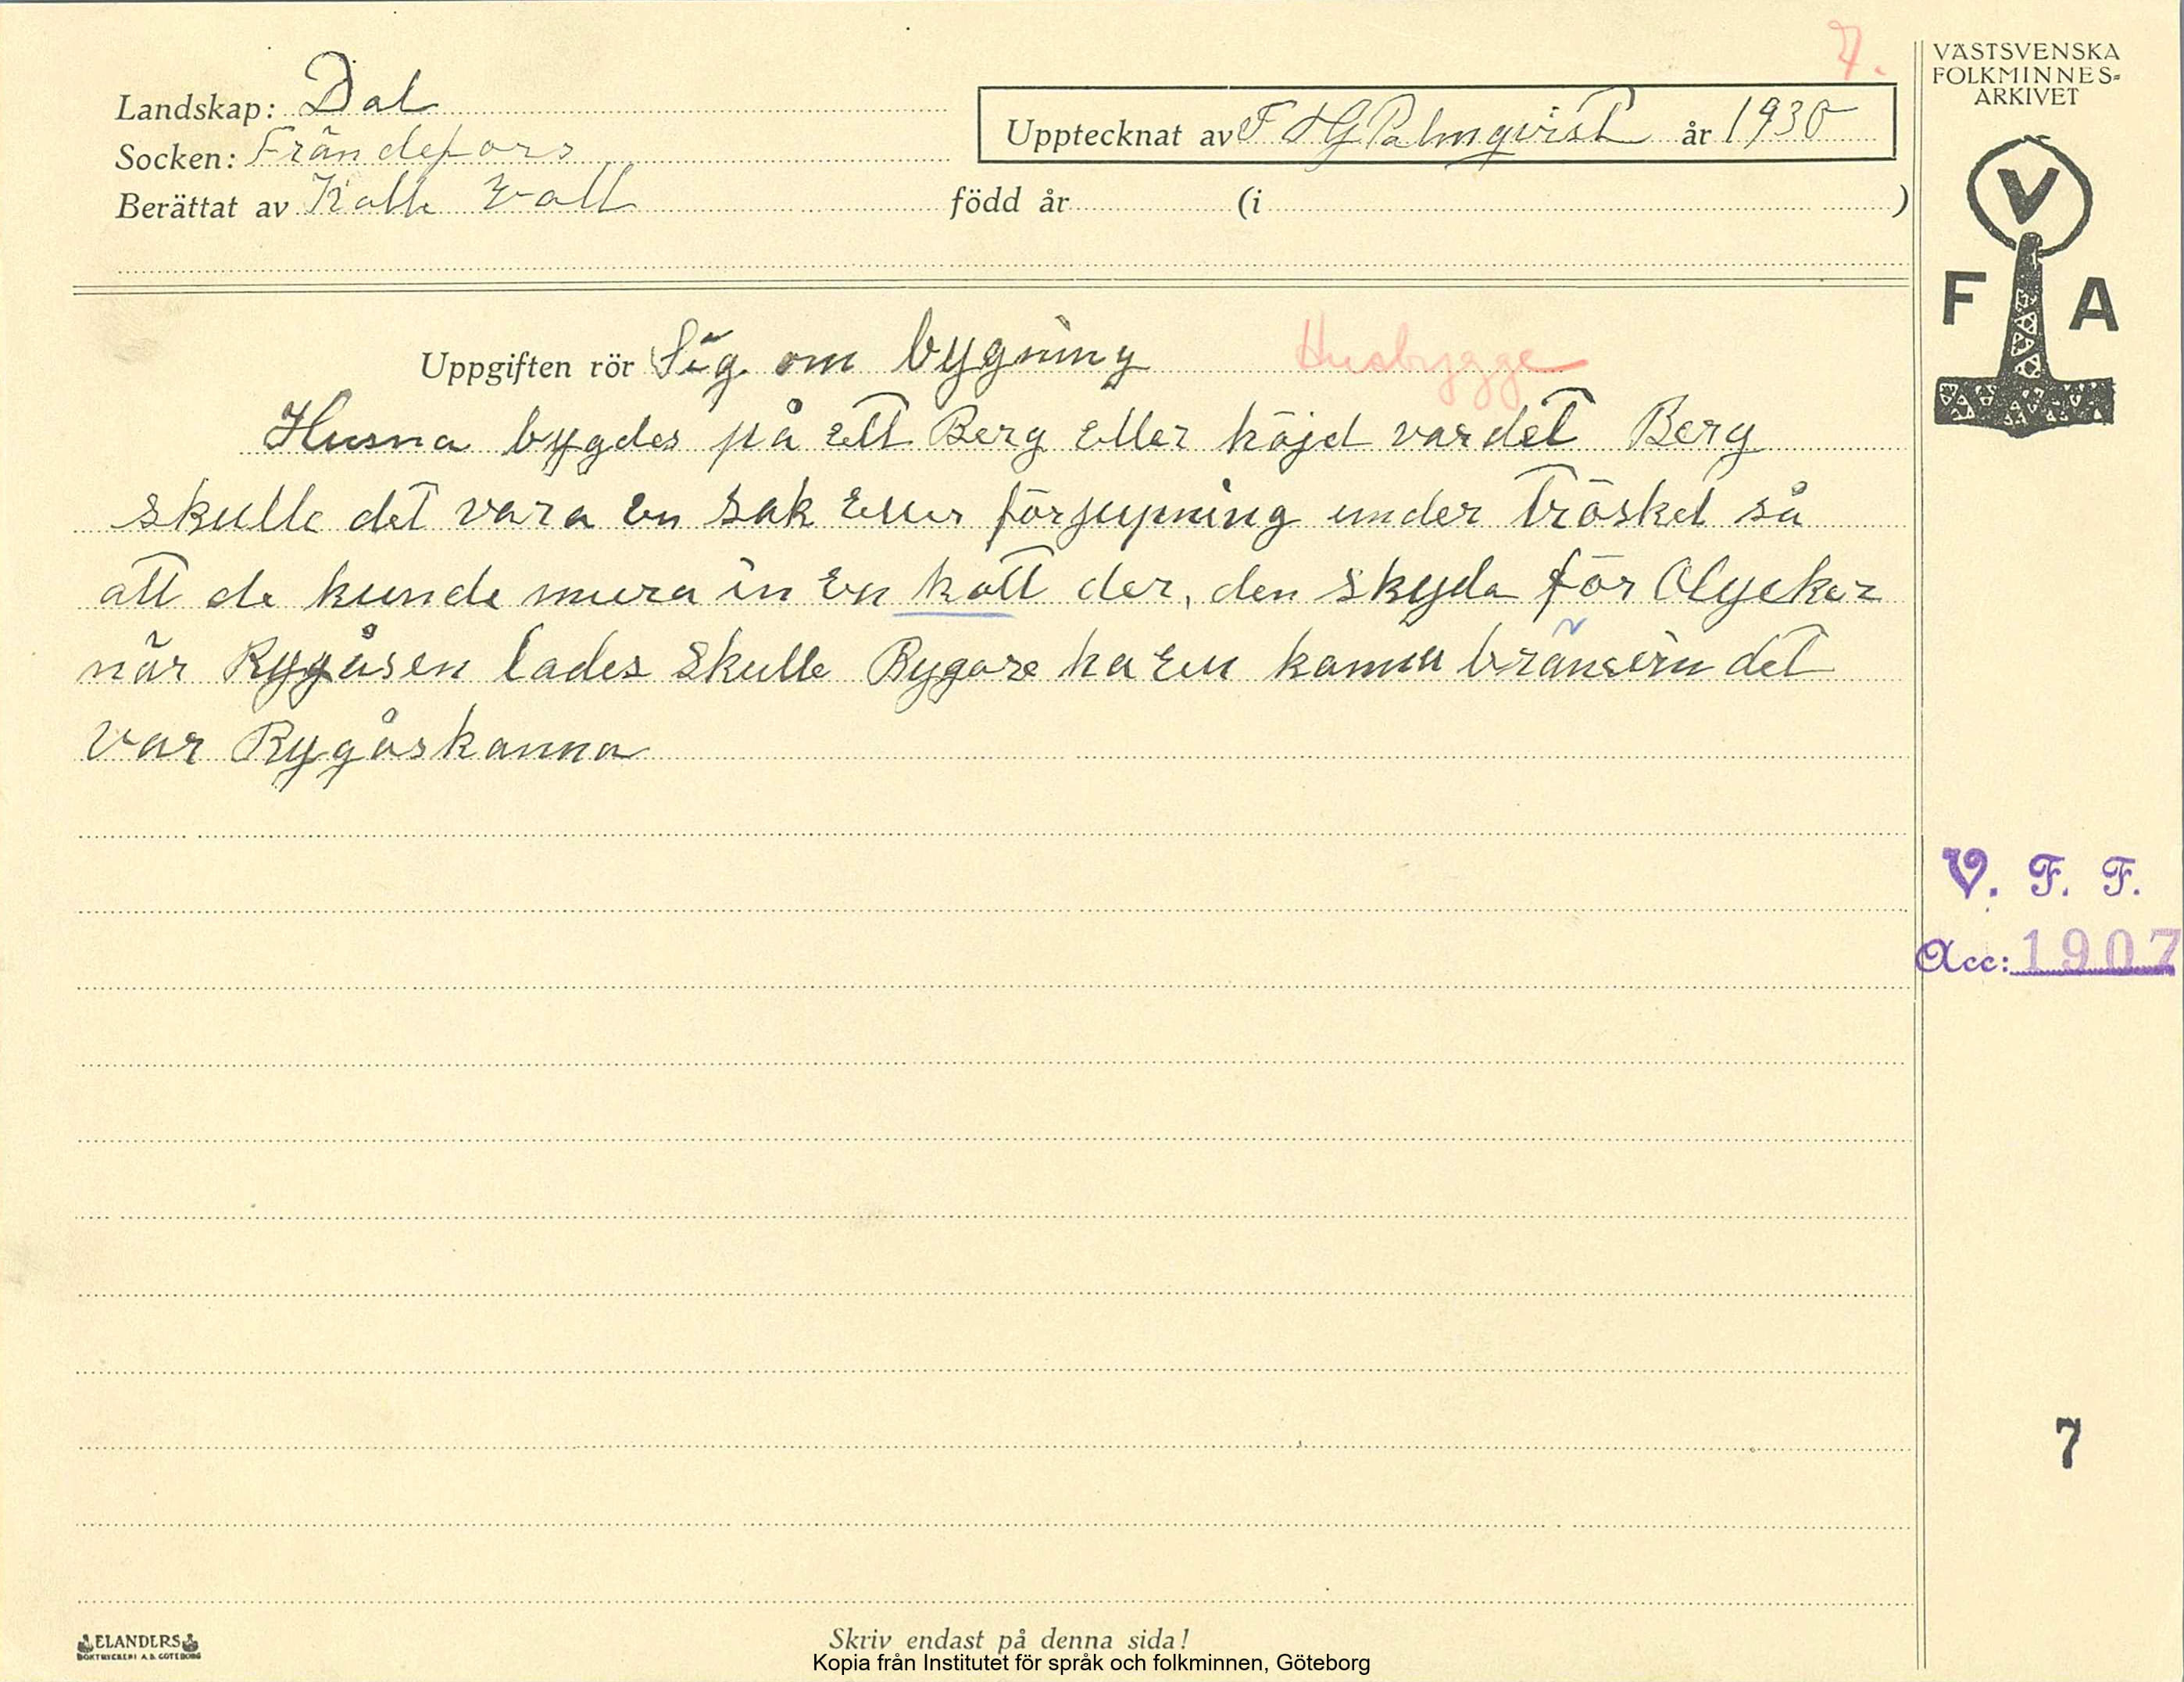 7.
VÄSTSVENSKA
FOLKMINNES-
ARKIVET
Landskap: Dal
Upptecknat av F HG Palmqvist år 1930
Socken: Frändefors
Berättat av Kalle Vall född år (i )
V
F A
Uppgiften rör Säg. om bygning Husbygge
Husna bygdes på ett Berg eller höjd var det Berg
skulle det vara en sak eller förjupning under Tröskel så
att de kunde mura in en katt der, den skyda för Olyckor
när Rygåsen lades skulle Bygare ha en kanna bränvin det
var Rygåskanna
V. F. F.
Acc: 1907
7
ELANDERS
BOKTRYCKERI A.B. GÖTEBORG
Skriv endast på denna sida!
Kopia från Institutet för språk och folkminnen, Göteborg